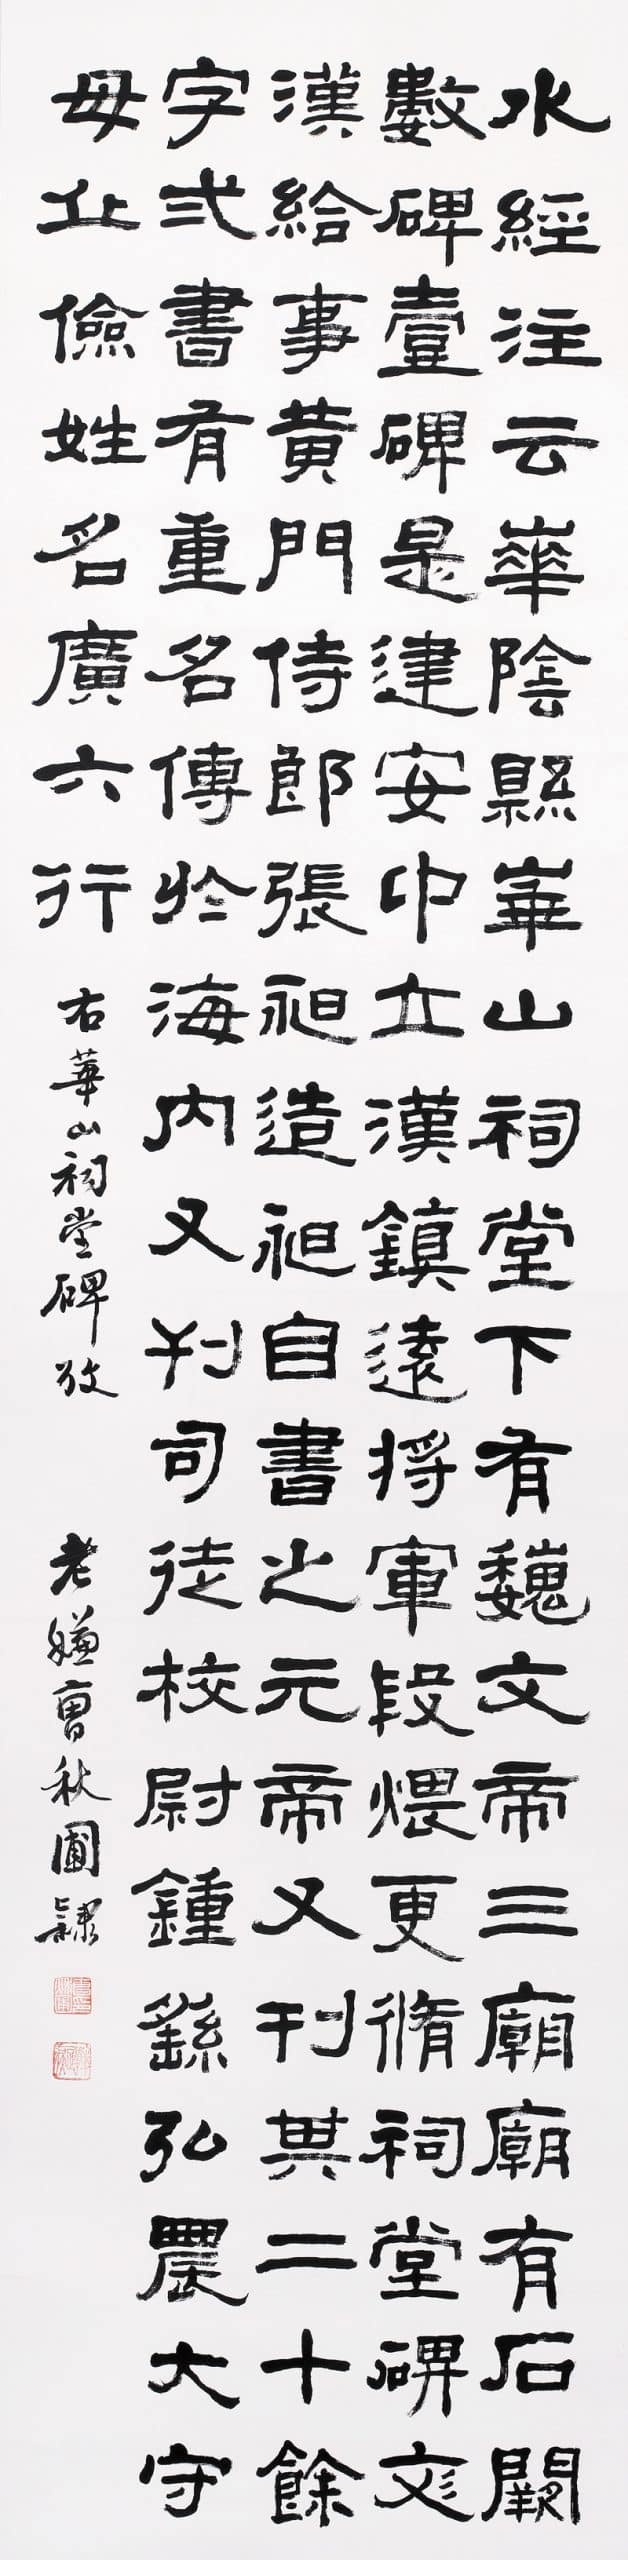 水經注云崋陰縣崋山祠堂下有魏文帝三廟廟有石闕
數碑壹碑是建安中立漢鎮遠將軍段煨更脩祠堂碑彣
漢給事黃門侍郎張昶造昶自書之元帝又刊其二十餘
字弍書有重名傳於海內又刊司徒校尉鍾繇弘農大守
毋丘儉姓名廣六行
右華山祠堂碑攷
老嫌曹秋圃隸